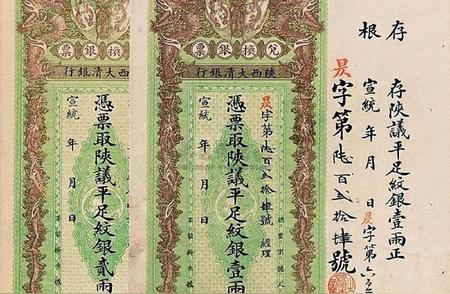 存根
存陝議平足紋銀壹兩正
宣統 年 月 日
字第六百
字第陸百弍拾肆號
兌換銀票
陝西大清銀行
字第陸百弍拾肆號 經理
憑票取陝議平足紋銀壹兩
宣統 年 月 日
兌換銀票
陝西大清銀行
憑票取陝議平足紋銀貳兩
宣統 年 月 日